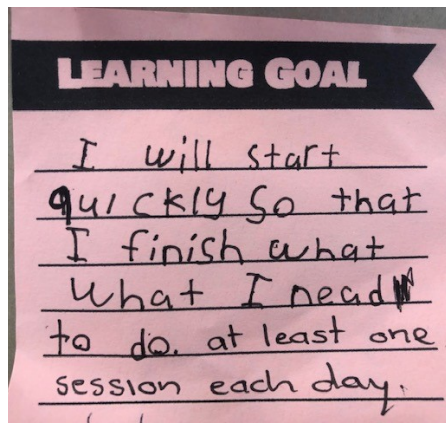 LEARNING GOAL
I will start
quickly so that
I finish what
what I nead
to do. at least one
session each day.